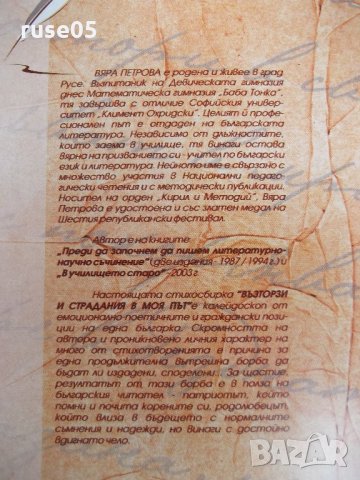 ruse05
ВЯРА ПЕТРОВА е родена и живее в град
Русе. Възпитаник на Девическата гимназия
днес Математическа гимназия „Баба Тонка",
тя завършва с отличие Софийския универ-
ситет „Климент Охридски". Целият ѝ профе-
сионален път е отдаден на българската
литература. Независимо от длъжностите,
които заема в училище, тя винаги остава
вярна на призванието си - учител по български
език и литература. Нейното име е свързано с
множество участия в Национални педаго-
гически четения и с методически публикации.
Носител на орден „Кирил и Методий", Вяра
Петрова е удостоена и със златен медал на
Шестия републикански фестивал.
Автор е на книгите:
„Преди да започнем да пишем литературно-
научно съчинение" (две издания - 1987/1994 г.) и
„В училището старо" - 2003 г.
Настоящата стихосбирка "ВЪЗТОРЗИ
И СТРАДАНИЯ В МОЯ ПЪТ" е калейдоскоп от
емоционално-поетичните и граждански пози-
ции на една българка. Скромността на
автора и проникновено личния характер на
много от стихотворенията е причина за
една продължителна вътрешна борба да
бъдат ли издадени, споделени. За щастие,
резултатът от тази борба е в полза на
българския читател - патриотът, който
помни и почита корените си, родолюбецът,
който влиза в бъдещето с нормалните
съмнения и надежди, но винаги с достойно
вдигнато чело.
BAZAR